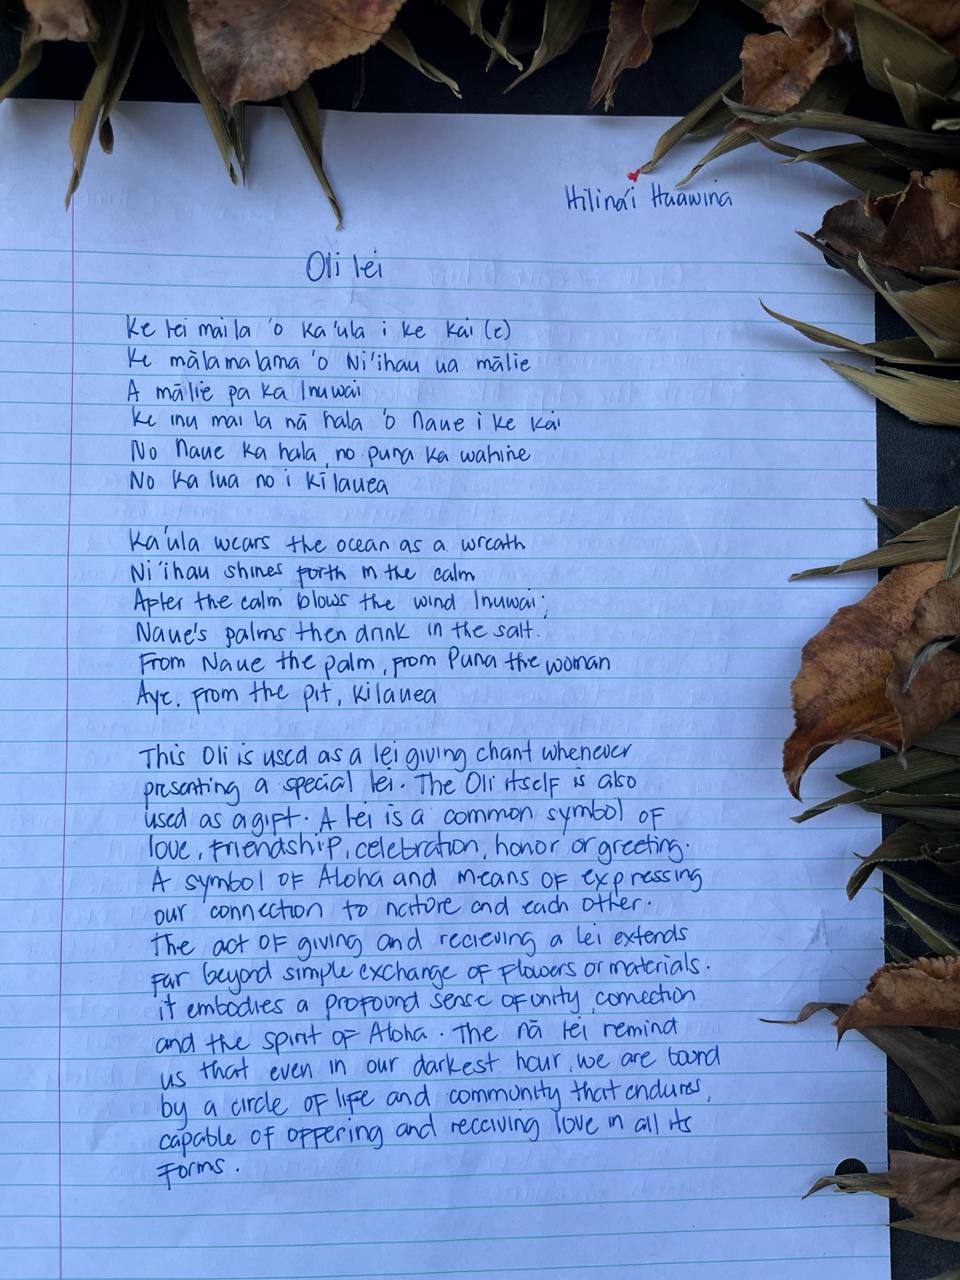 Hilina'i Haawina
Oli lei
Ke lei mai la 'o Ka'ula i ke kai (e)
Ke mālamalama 'o Ni'ihau ua mālie
A mālie pa ka Inuwai
Ke inu mai la nā hala 'o Naue i ke kai
No Naue ka hala, no puna ka wahine
No ka lua no i kīlauea
Ka'ula wears the ocean as a wreath
Ni'ihau shines forth in the calm
After the calm blows the wind Inuwai;
Naue's palms then drink in the salt.
From Naue the palm, from Puna the woman
Aye, from the pit, Kilauea
This Oli is used as a lei giving chant whenever
presenting a special lei. The Oli itself is also
used as a gift. A lei is a common symbol of
love, friendship, celebration, honor or greeting.
A symbol of Aloha and means of expressing
our connection to nature and each other.
The act of giving and recieving a lei extends
far beyond simple exchange of flowers or materials.
it embodies a profound sense of unity, connection
and the spirit of Aloha. The nā lei remind
us that even in our darkest hour, we are bound
by a circle of life and community that endures,
capable of offering and receiving love in all its
forms.